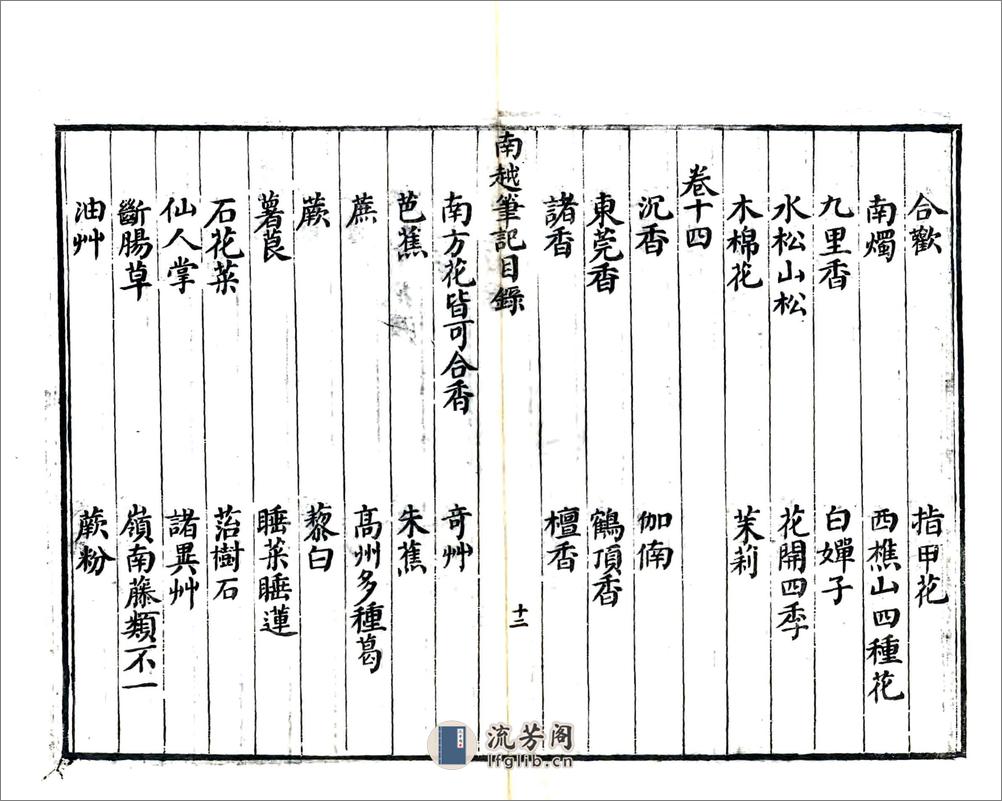 合歡　指甲花
南燭　西樵山四種花
九里香　白嬋子
水松山松　花開四季
木棉花　茉莉
卷十四
沉香　伽㑲
東莞香　鶴頂香
諸香　檀香
南越筆記目錄　十二
南方花皆可合香　奇艸
芭蕉　朱蕉
蔗　高州多種葛
蕨　藜白
薯莨　睡菜睡蓮
石花菜　菭樹石
仙人掌　諸異艸
斷腸草　嶺南藤類不一
油艸　蕨粉
流芳阁
lfglib.cn